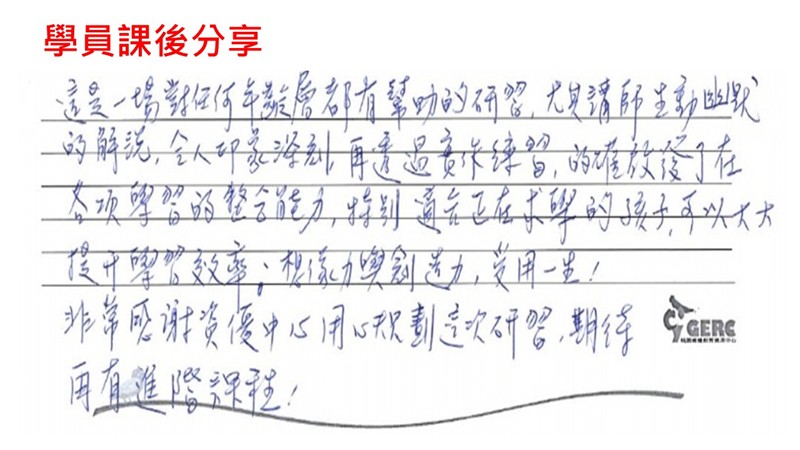 學員課後分享
這是一場對任何年齡層都有幫助的研習,尤其講師生動幽默
的解說,令人印象深刻,再透過實作練習,的確啟發了在
各項學習的整合能力,特別適合正在求學的孩子,可以大大
提升學習效率;想像力與創造力,受用一生!
非常感謝資優中心用心規劃這次研習,期待
GERC
桃園資優教育資源中心
再有進階課程!